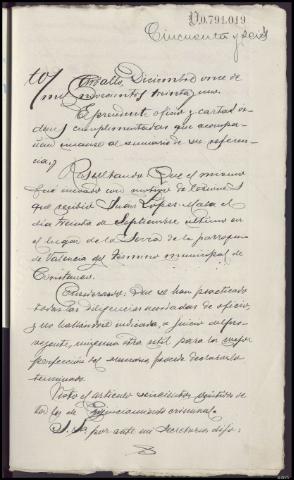 0.791.019
Cincuenta y seis
Carballo, Diciembre once de
mil novecientos treinta y uno.
El precedente oficio y cartas or-
denes cumplimentadas que acompa-
ñan unanse al sumario de su referen-
cia, y
Resultando: Que el mismo
fué iniciado con motivo de lesiones
que recibió Juan López Mata el
día treinta de Septiembre último en
el lugar de la Serra de la parroquia
de Valencia del termino municipal de
Coristanco.
Considerando: Que se han practicado
todas las diligencias acordadas de oficio,
y no hallandose indicada, a juicio del pro-
veyente, ninguna otra util para la mejor
perfección del sumario, procede declararlo
terminado.
Visto el articulo seiscientos veintidos de
la ley de Enjuiciamiento criminal.
S.Sª. por ante mi Secretario dijo: